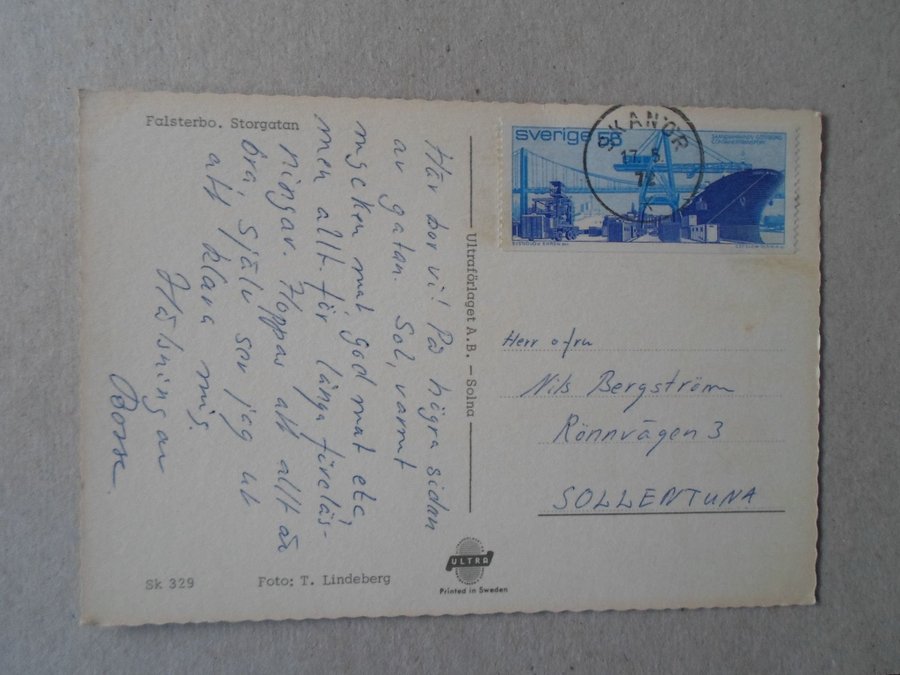 Falsterbo. Storgatan
Här bor vi! På högra sidan
av gatan. Sol, varmt
mycken mat god mat etc,
men allt för långa föreläs-
ningar. Hoppas att allt är
bra, Själv ser jag ut
att klara mig.
Hälsningar
Bosse.
Ultraförlaget A.B. – Solna
sverige 55
SKANÖR
17. 5.
72
Herr o fru
Nils Bergström
Rönnvägen 3
SOLLENTUNA
Sk 329
Foto: T. Lindeberg
ULTRA
Printed in Sweden